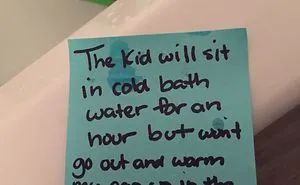 The Kid will sit
in cold bath
water for an
hour but won't
go out and warm
my car up in the